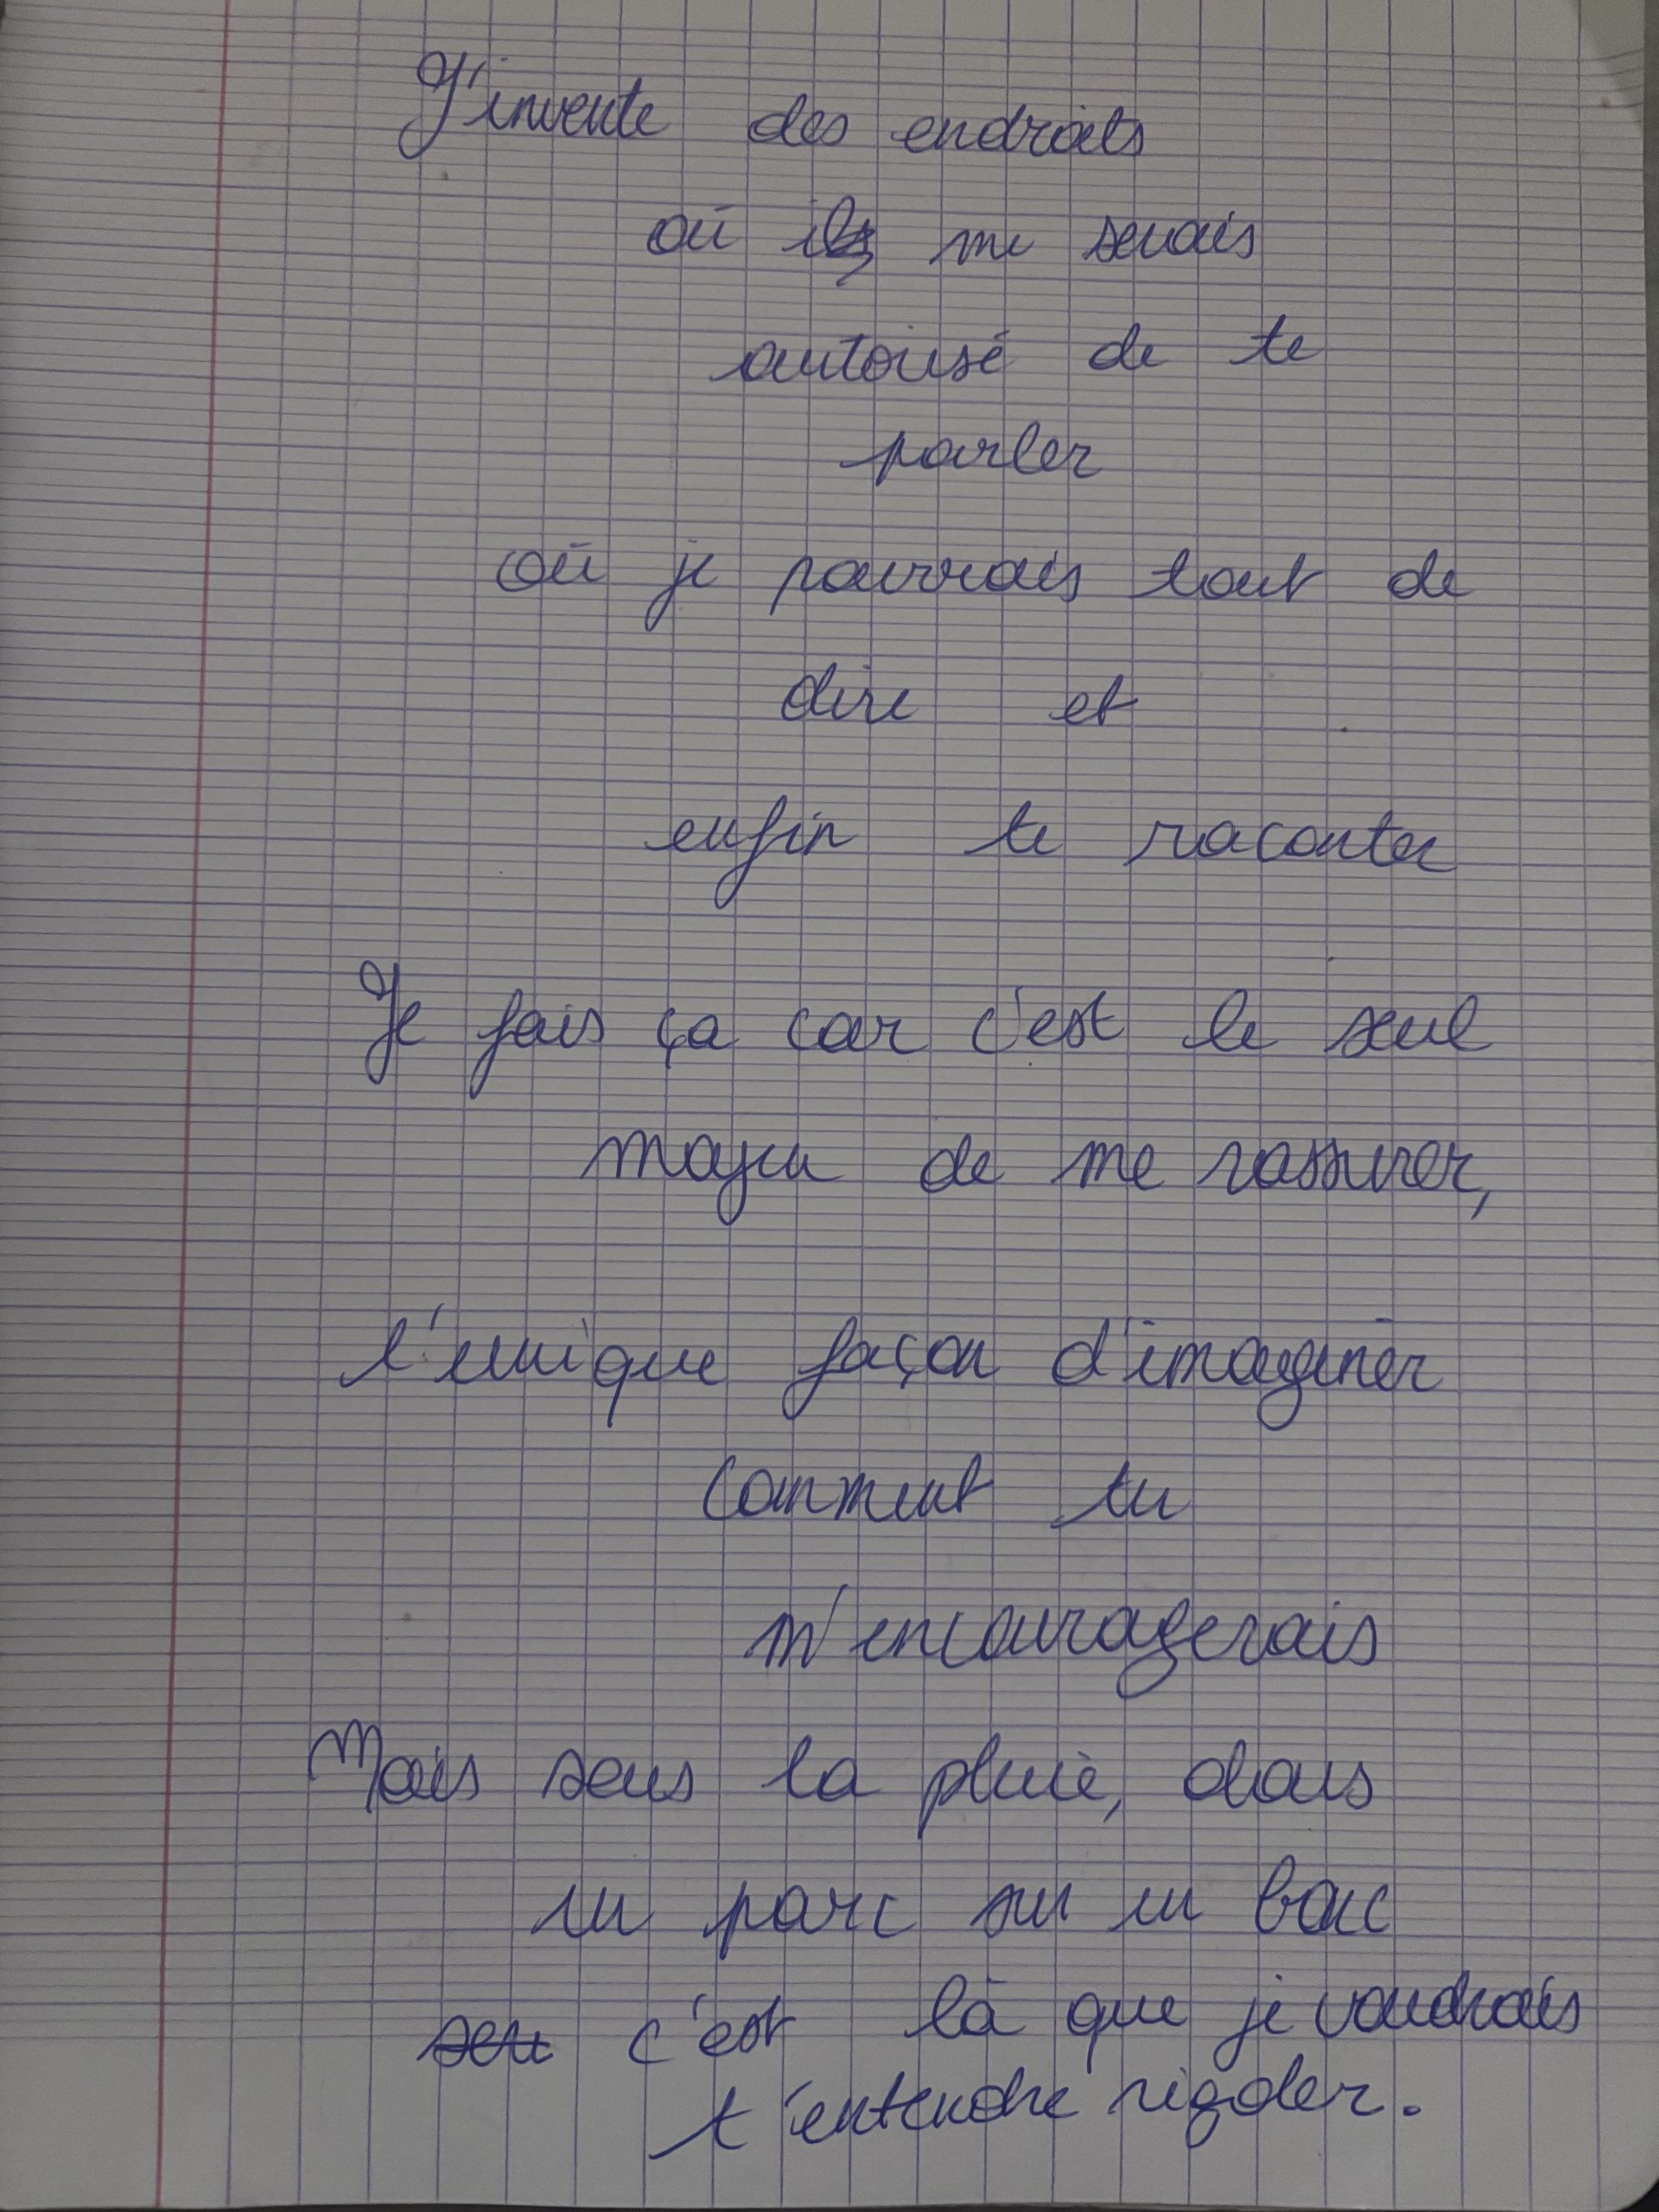 J'invente des endroits
où il me serais
autorisé de te
parler
où je pourrais tout de
dire et
enfin te raconter
Je fais ça car c'est le seul
moyen de me rassurer,
l'unique façon d'imaginer
comment tu
m'encouragerais
Mais sous la pluie, dans
un parc sur un banc
c'est là que je voudrais
t'entendre rigoler.